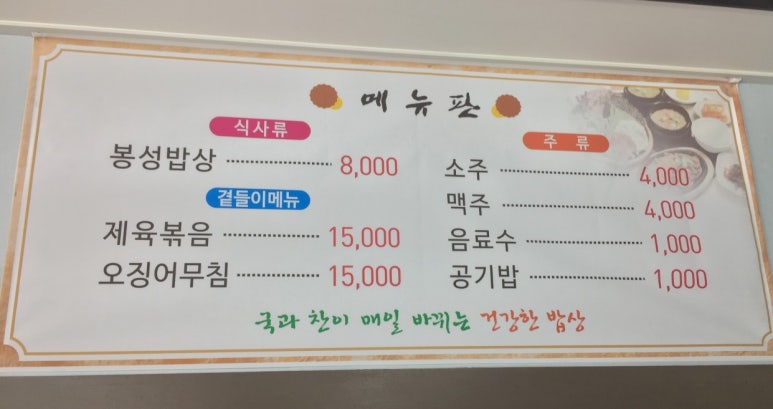 메뉴판
식사류
봉성밥상 8,000
곁들이메뉴
제육볶음 15,000
오징어무침 15,000
주류
소주 4,000
맥주 4,000
음료수 1,000
공기밥 1,000
국과 찬이 매일 바뀌는 건강한 밥상